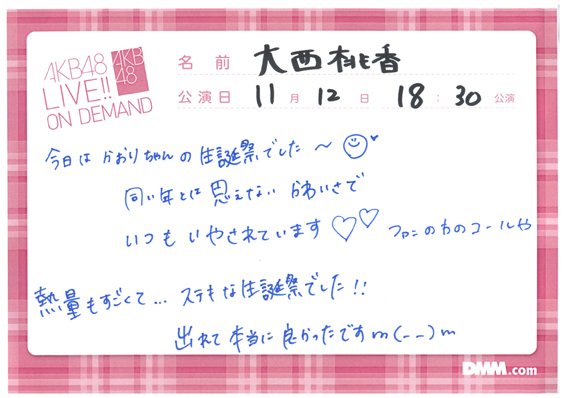 AKB48
LIVE!!
ON DEMAND
AKB
48
名前 大西桃香
公演日 11月12日 18:30公演
今日は かおりちゃんの生誕祭でした〜
同い年とは思えない かわいさで
いつもいやされています♡♡ ファンの方のコールや
熱量もすごくて... ステキな生誕祭でした!!
出れて本当に良かったですm(--)m
DMM.com